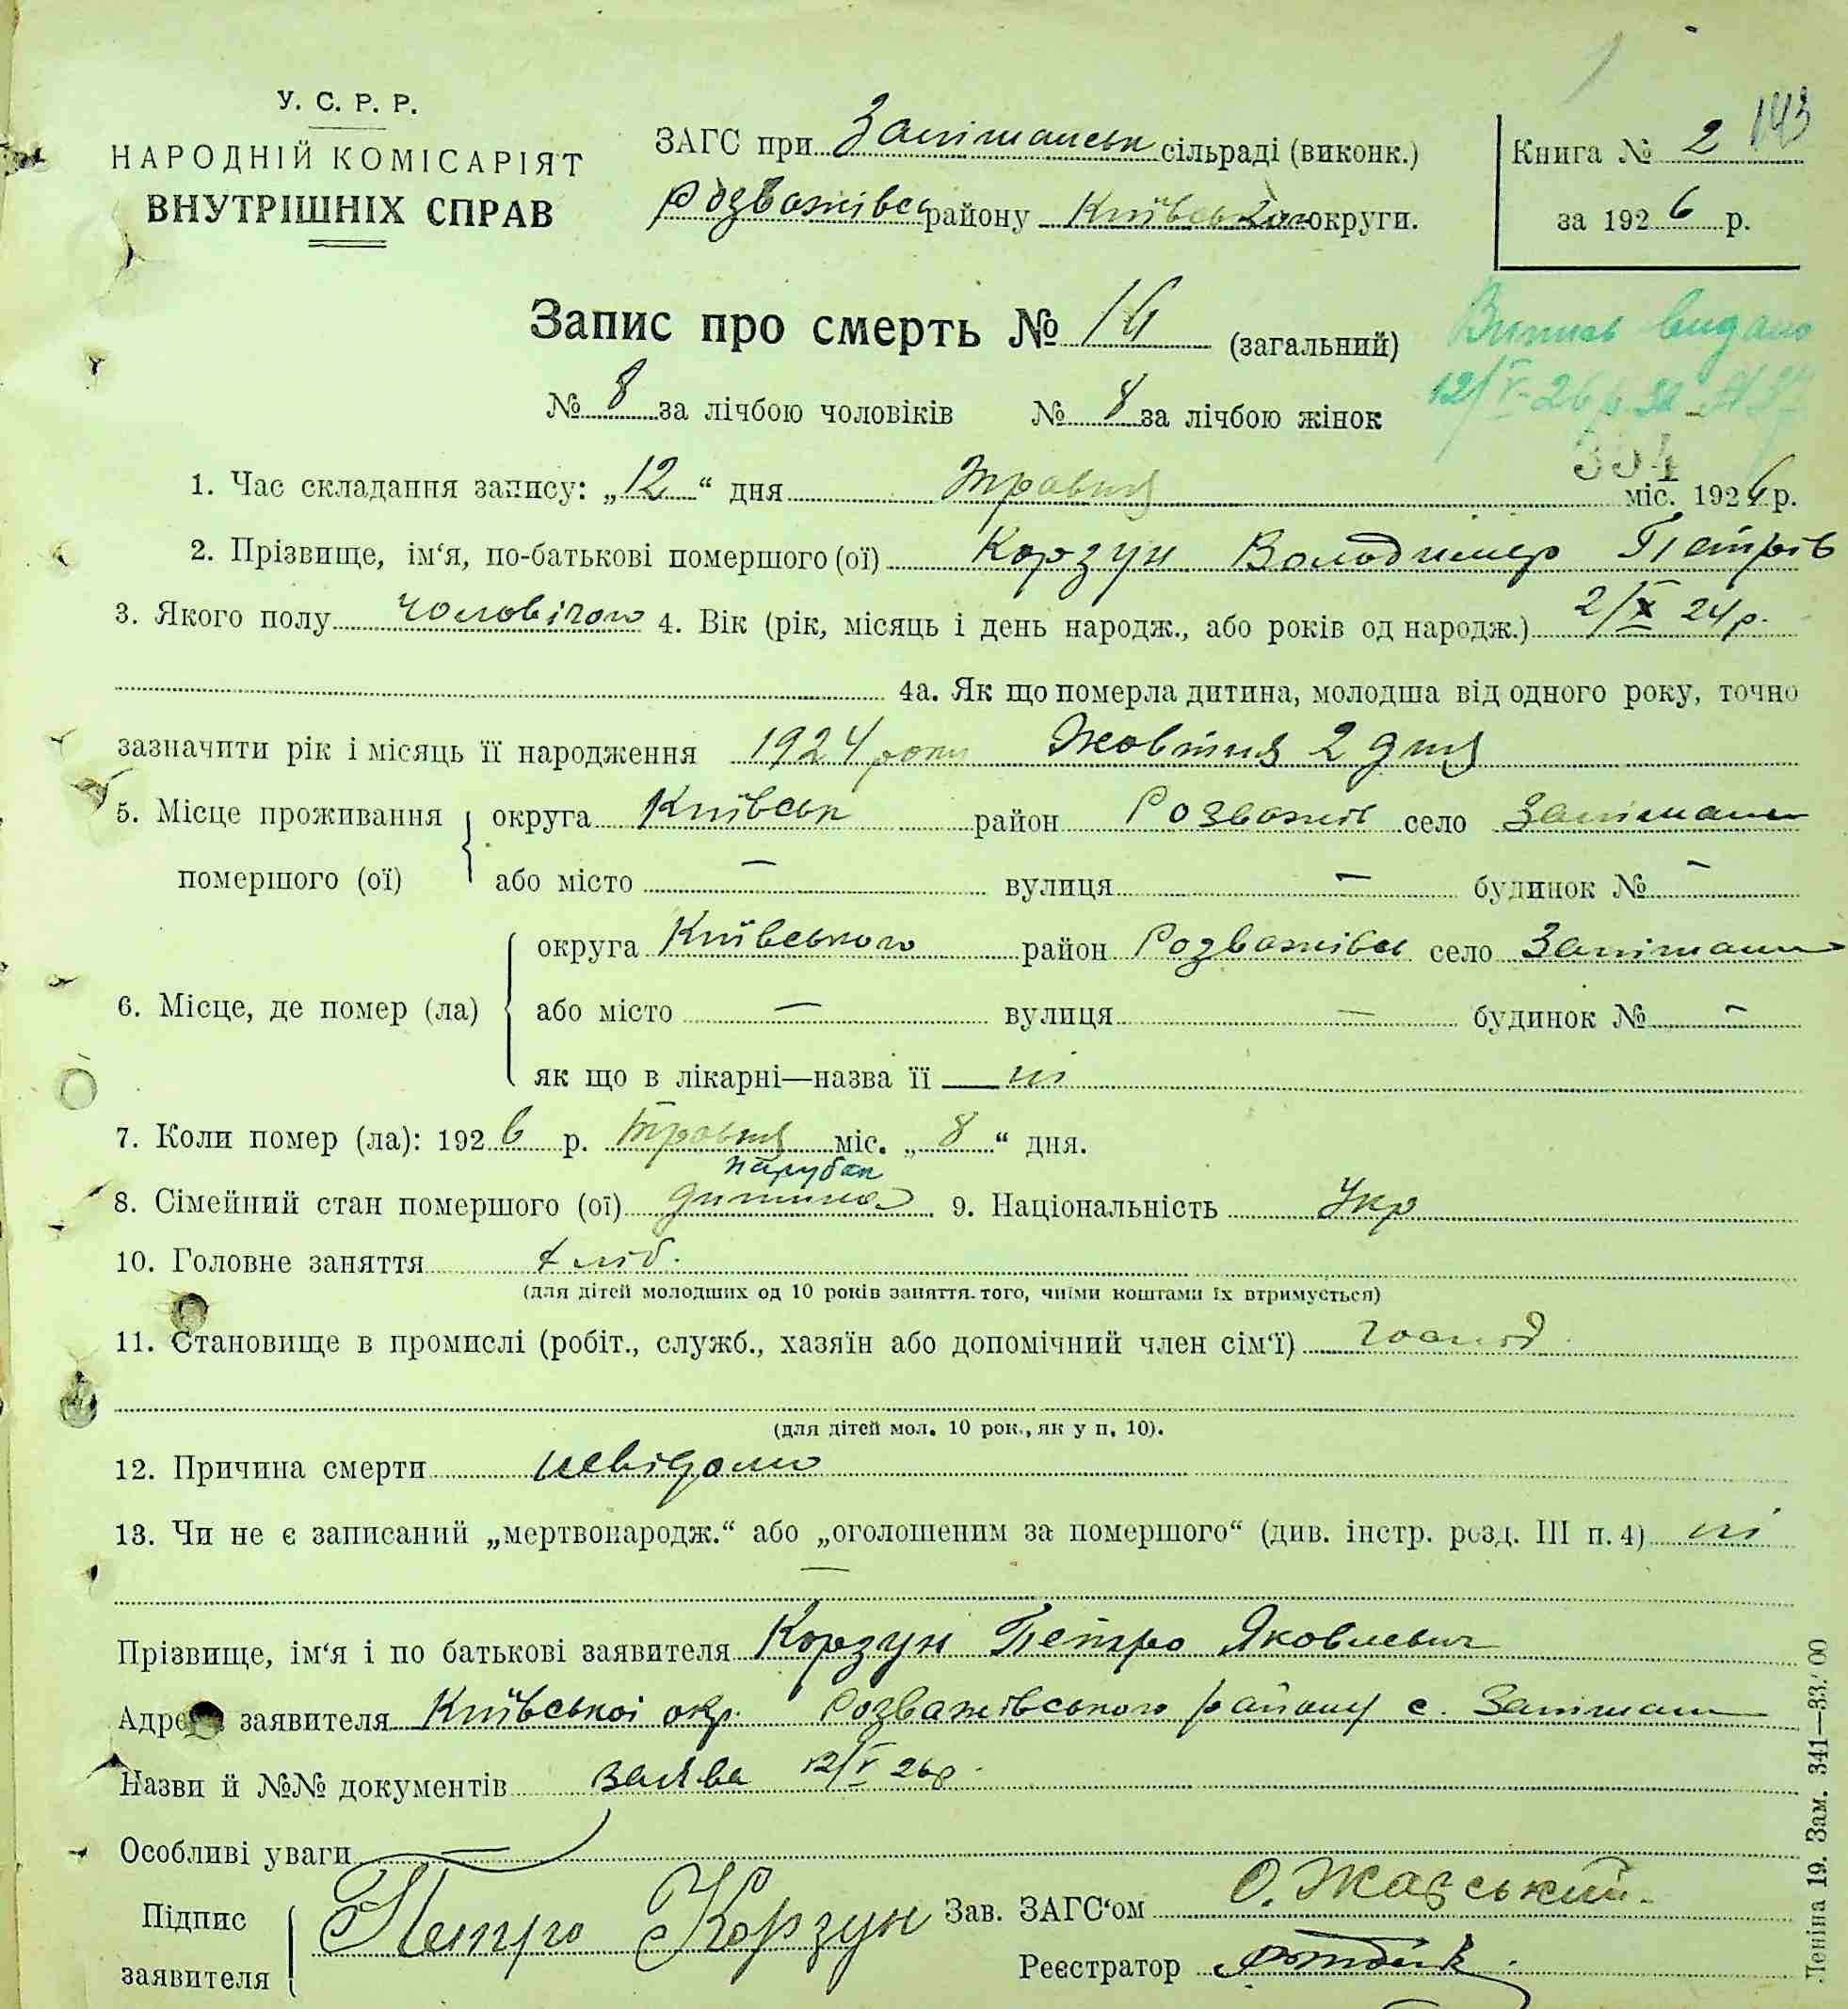 У. С. Р. Р.
НАРОДНІЙ КОМІСАРІЯТ
ВНУТРІШНІХ СПРАВ
ЗАГС при сільраді (виконк.)
Розважівськ району Київської округи.
Книга № 2 143
за 1926 р.
Запис про смерть № 16 (загальний)
Випись видано
12/V-26 р. за №
№ 8 за лічбою чоловіків № 8 за лічбою жінок
354
1. Час складання запису: „12“ дня травня міс. 1926 р.
2. Прізвище, ім‘я, по-батькові помершого (ої) Корзун Володимер Петрів
3. Якого полу чоловічого 4. Вік (рік, місяць і день народж., або років од народж.) 2/X 24 р.
4а. Як що померла дитина, молодша від одного року, точно
зазначити рік і місяць її народження 1924 року Жовтня 2 дня
5. Місце проживання помершого (ої) округа Київськ район Розважів село
або місто — вулиця — будинок № —
6. Місце, де помер (ла) округа Київського район Розважівськ село
або місто — вулиця — будинок № —
як що в лікарні—назва її ні
7. Коли помер (ла): 1926 р. травня міс. „8“ дня.
парубок
8. Сімейний стан помершого (ої) дитина 9. Національність Укр
10. Головне заняття хліб.
(для дітей молодших од 10 років заняття того, чиїми коштами їх втримується)
11. Становище в промислі (робіт., служб., хазяїн або допомічний член сім‘ї)
(для дітей мол. 10 рок., як у п. 10).
12. Причина смерти невідомо
13. Чи не є записаний „мертвонародж.“ або „оголошеним за помершого“ (див. інстр. розд. III п. 4) ні
—
Прізвище, ім‘я і по батькові заявителя Корзун Петро Яковлевич
Адреса заявителя Київської окр. Розважівського району с.
Назви й №№ документів заява 12/V 26р.
Особливі уваги —
Підпис заявителя Петро Корзун
Зав. ЗАГС‘ом О.
Реєстратор
Леніна 19. Зам. 341—33.00